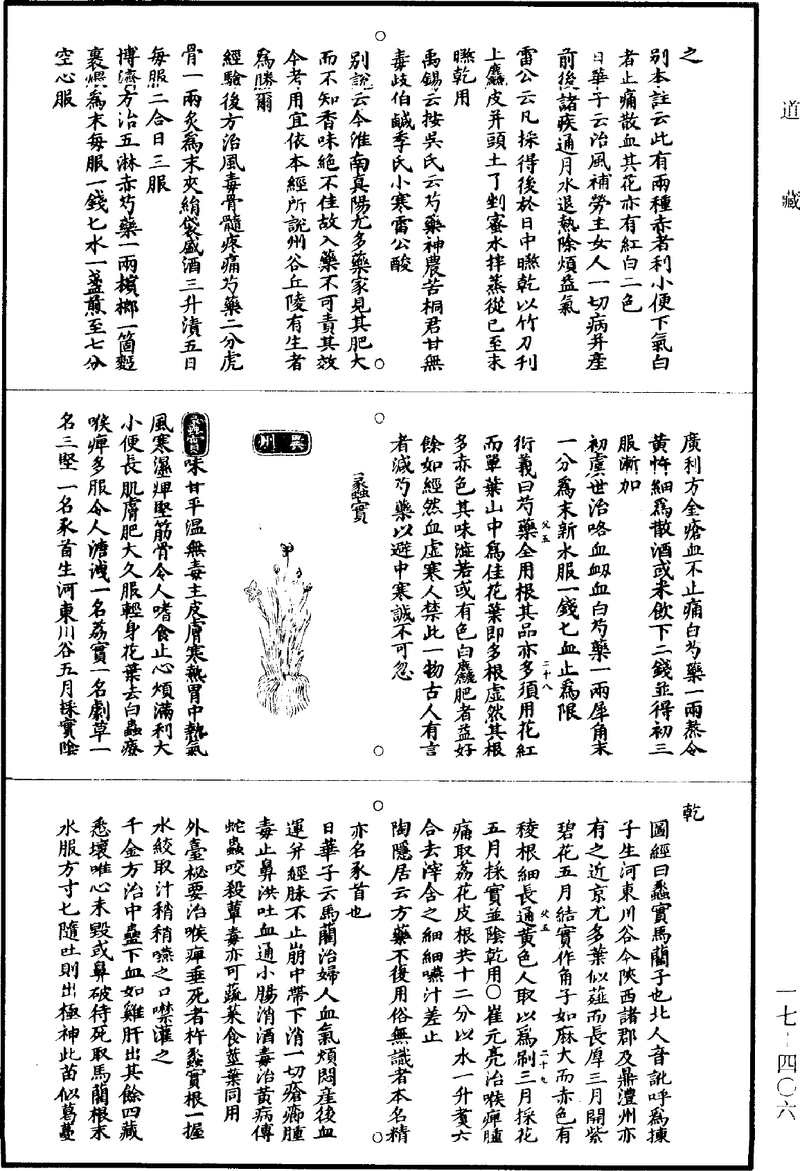 道藏
之
別本註云此有兩種赤者利小便下氣白
者止痛散血其花亦有紅白二色
日華子云治風補勞主女人一切病并產
前後諸疾通月水退熱除煩益氣
雷公云凡採得後於日中曬乾以竹刀刮
上麤皮并頭土了剉蜜水拌蒸從巳至未
曬乾用
禹錫云按吳氏云芍藥神農苦桐君甘無
毒歧伯鹹季氏小寒雷公酸
別說云今淮南真陽尤多藥家見其肥大
而不知香味絕不佳故入藥不可責其效
今考用宜依本經所說州谷丘陵有生者
為勝爾
經驗後方治風毒骨髓疼痛芍藥二分虎
骨一兩炙為末夾絹袋盛酒三升漬五日
每服二合日三服
博濟方治五淋赤芍藥一兩檳榔一箇麪
裹煨為末每服一錢匕水一盞煎至七分
空心服
廣利方金瘡血不止痛白芍藥一兩熬令
黃杵細為散酒或米飲下二錢並得初三
服漸加
初虞世治咯血衂血白芍藥一兩犀角末
一分為末新水服一錢匕血止為限
衍義曰芍藥全用根其品亦多須用花紅
而單葉山中為佳花葉即多根虛然其根
多赤色其味澁若或有色白麤肥者益好
餘如經然血虛寒人禁此一物古人有言
者減芍藥以避中寒誠不可忽
蠡實
冀州
蠡實味甘平溫無毒主皮膚寒熱胃中熱氣
風寒濕痺堅筋骨令人嗜食止心煩滿利大
小便長肌膚肥大久服輕身花葉去白蟲療
喉痺多服令人溏洩一名荔實一名劇草一
名三堅一名豕首生河東川谷五月採實陰
乾
圖經曰蠡實馬藺子也北人音訛呼為揀
子生河東川谷今陝西諸郡及鼎澧州亦
有之近京尤多葉似薤而長厚三月開紫
碧花五月結實作角子如麻大而赤色有
稜根細長通黃色人取以為刷三月採花
五月採實並陰乾用○崔元亮治喉痺腫
痛取荔花皮根共十二分以水一升煮六
合去滓含之細細嚥汁差止
陶隱居云方藥不復用俗無識者本名精
亦名豕首也
日華子云馬藺治婦人血氣煩悶產後血
運并經脉不止崩中帶下消一切瘡癤腫
毒止鼻洪吐血通小腸消酒毒治黃病傅
蛇蟲咬殺蕈毒亦可蔬菜食莖葉同用
外臺秘要治喉痺垂死者杵蠡實根一握
水絞取汁稍稍嚥之口噤灌之
千金方治中蠱下血如雞肝出其餘四藏
悉壞唯心未毀或鼻破待死取馬藺根末
水服方寸匕隨吐則出極神此苗似葛蔓
一七-四〇六